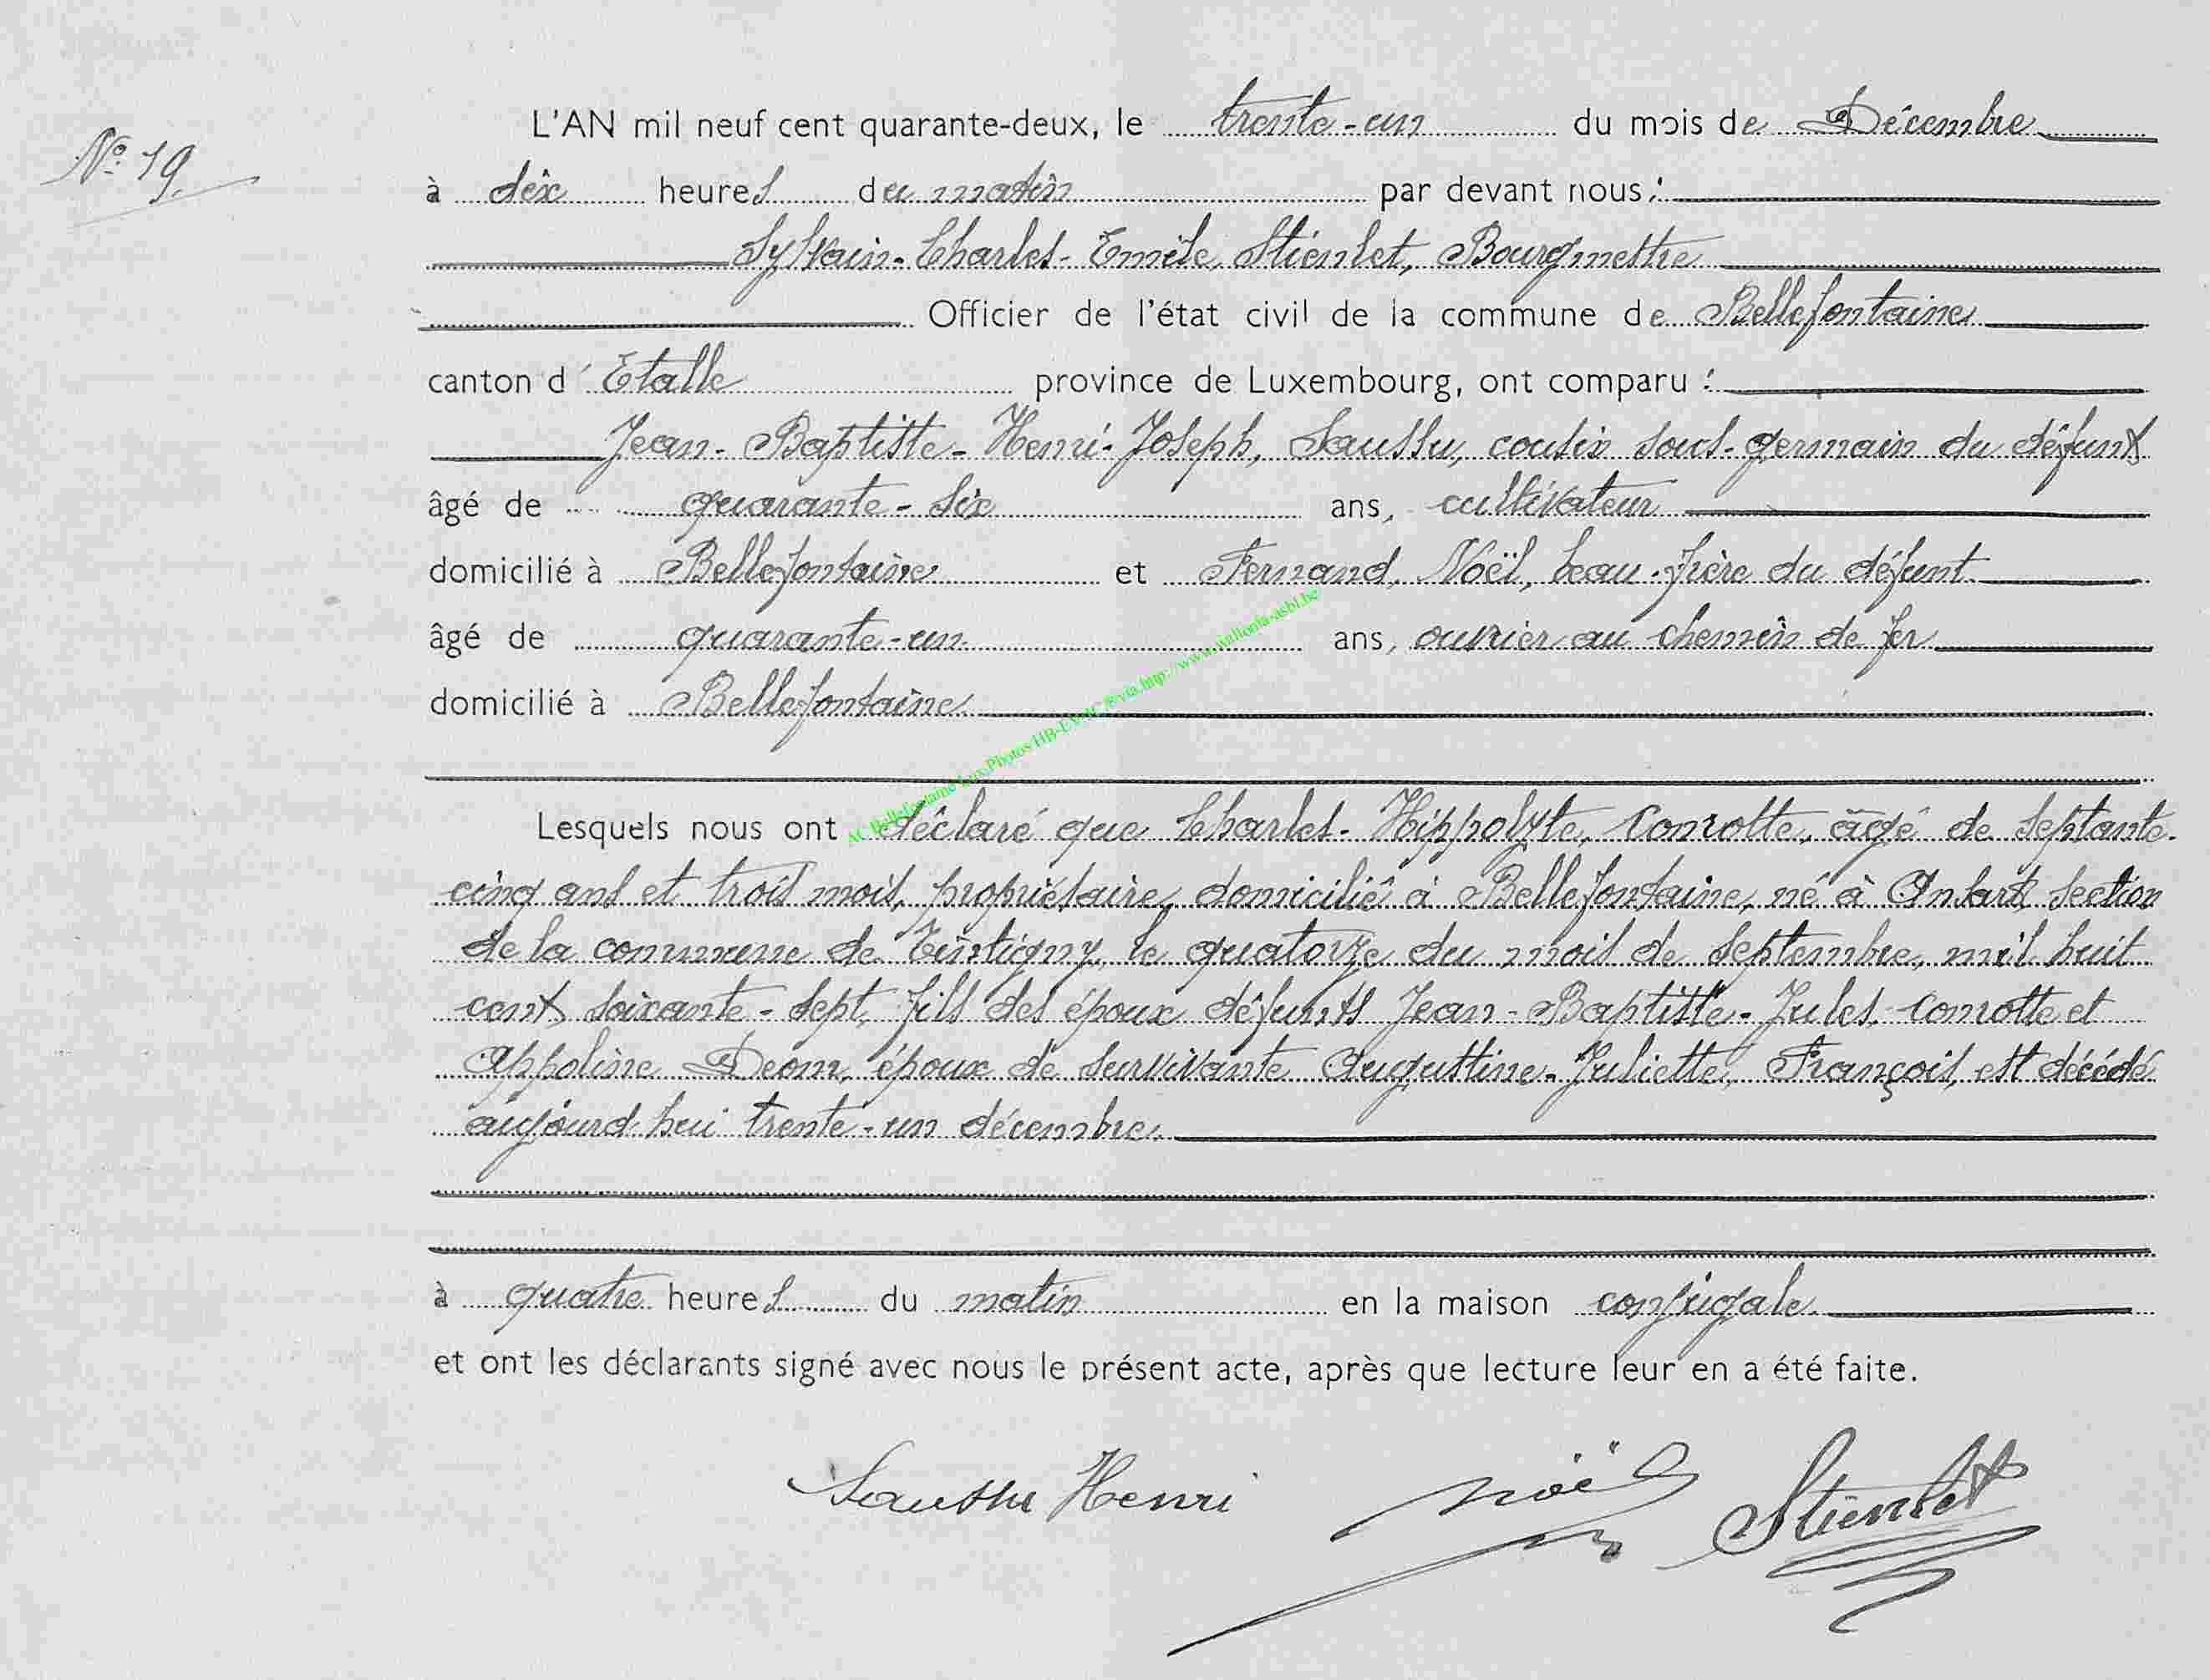 L'AN mil neuf cent quarante-deux, le trente-un du mois de Décembre
N° 19.
à dix heures du matin par devant nous :
Sylvain-Charles-Emile, Stienlet, Bourgmestre
Officier de l'état civil de la commune de Bellefontaine
canton d'Etalle province de Luxembourg, ont comparu :
Jean-Baptiste-Henri-Joseph, Saussu, cousin sous-germain du défunt
âgé de quarante-six ans, cultivateur
domicilié à Bellefontaine et Fernand, Noël, beau-frère du défunt
âgé de quarante-un ans, ouvrier au chemin de fer
domicilié à Bellefontaine
Lesquels nous ont déclaré que Charles-Hippolyte, Conrotte, âgé de septante-
cinq ans et trois mois, propriétaire, domicilié à Bellefontaine, né à Ansart, section
de la commune de Tintigny, le quatorze du mois de septembre, mil huit
cent soixante-sept, fils des époux défunts Jean-Baptiste-Jules, Conrotte et
Appoline Deom, époux de survivante Augustine-Juliette, François, est décédé
aujourd'hui trente-un décembre.
à quatre heures du matin en la maison conjugale
et ont les déclarants signé avec nous le présent acte, après que lecture leur en a été faite.
Saussu Henri Noël Stienlet